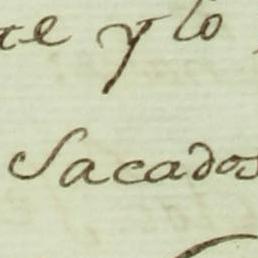 te y lo
Sacados